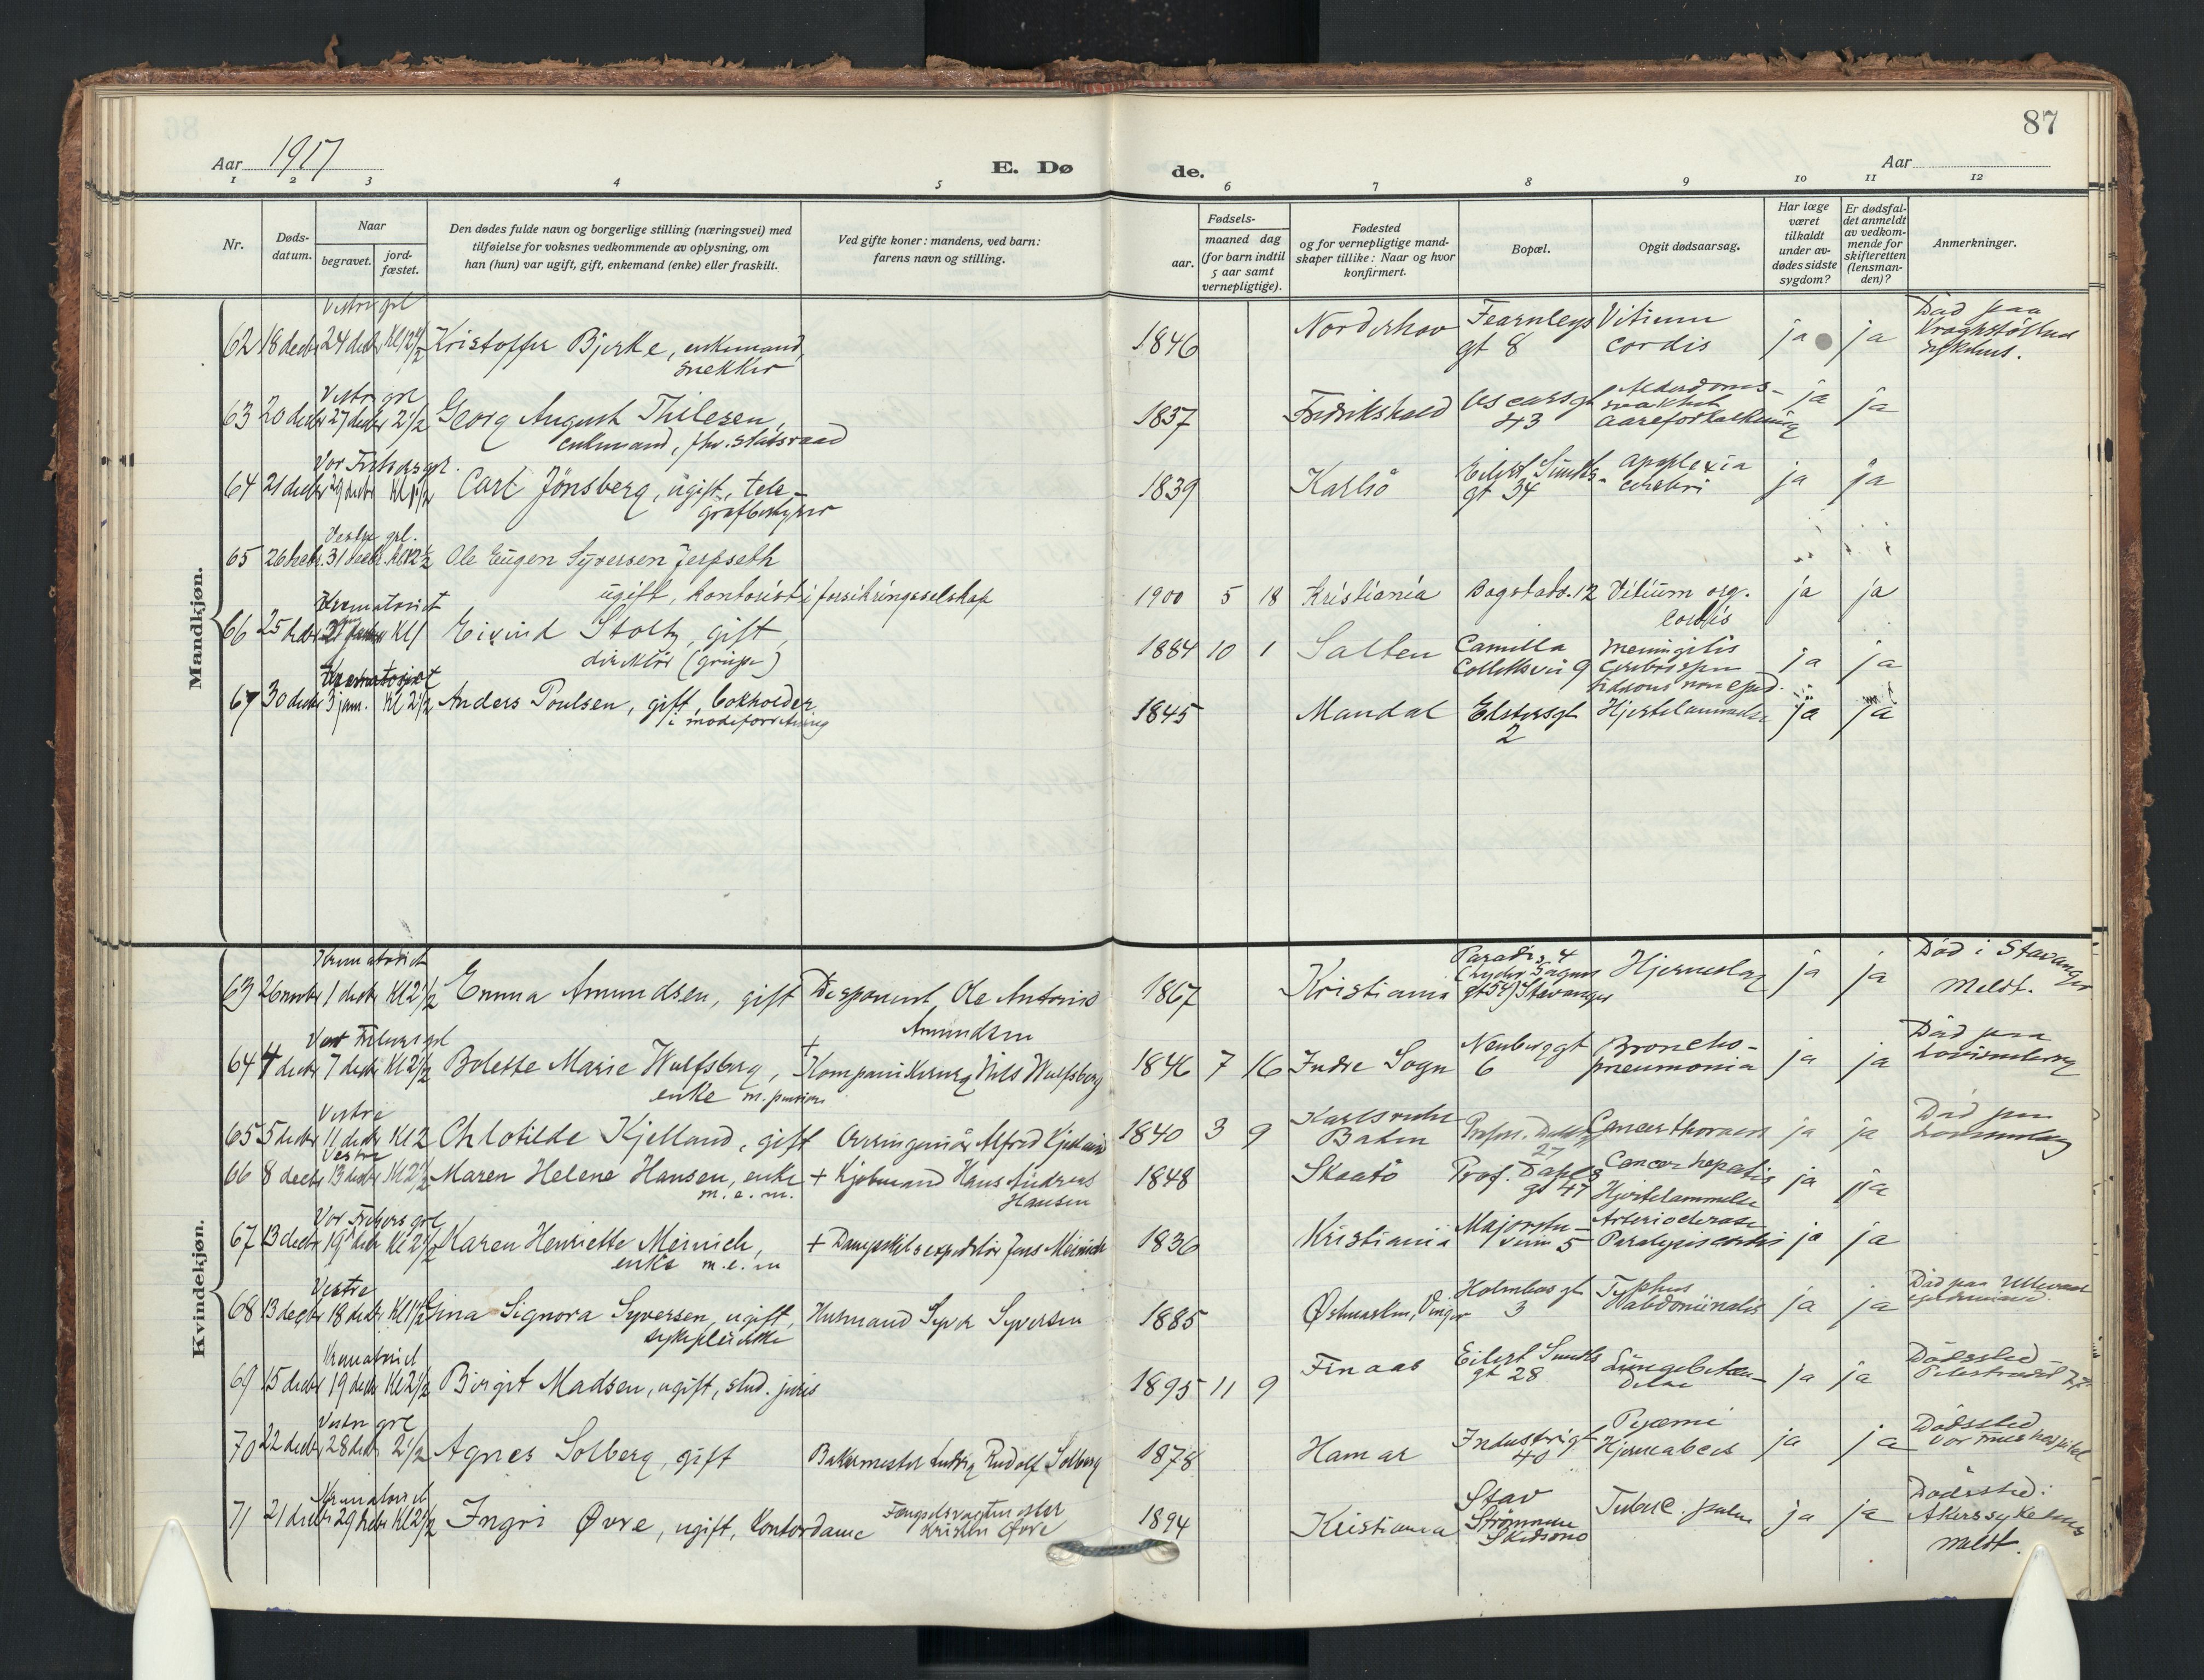 87
Aar 1917
E. Dø
de.
Aar
1 2 3 4 5 6 7 8 9 10 11 12
Nr.
Døds-
datum.
Naar
begravet.
jord-
fæstet.
Den dødes fulde navn og borgerlige stilling (næringsvei) med
tilføielse for voksnes vedkommende av oplysning, om
han (hun) var ugift, gift, enkemand (enke) eller fraskilt.
Ved gifte koner: mandens, ved barn:
farens navn og stilling.
Fødsels-
aar.
maaned dag
(for barn indtil
5 aar samt
vernepligtige).
Fødested
og for vernepligtige mand-
skaper tillike: Naar og hvor
konfirmert.
Bopæl.
Opgit dødsaarsag.
Har læge
været
tilkaldt
under av-
dødes sidste
sygdom?
Er dødsfal-
det anmeldt
av vedkom-
mende for
skifteretten
(lensman-
den)?
Anmerkninger.
Mandkjøn.
Vestre grl
62 18 decbr 24 decbr Kl 12 1/2 Kristoffer Bjerke, enkemand,
snekker
1846 Norderhov Fearnleys
gt 8
Vitium
cordis
ja ja
Död paa
Krogstøtten
sykehus.
Vestre grl
63 20 decbr 27 decbr 2 1/2 Georg August Thilesen,
enkemand, fhv. statsraad
1837 Fredrikshald Oscarsgt
43
Alderdoms-
svakhet
Aareforkalkning
ja ja
Vor Frelsers grl.
64 21 decbr 29 decbr Kl 1/2 Carl Jönsberg, ugift, tele-
grafbestyrer
1839 Karlsö Eilert Sundts
gt 34
Apoplexia
cerebri
ja ja
Vestre grl.
65 26 decbr. 31 decbr. Kl 12 1/2 Ole Eugen Syversen Jerpseth
ugift, kontorist i forsikringsselskap
1900 5 18 Kristiania Bogstadv. 12 Vitium org.
cordis
ja ja
Krematoriet
66 25 decbr Kl 1 Eivind Stoltz, gift,
direktør (grube)
1884 10 1 Salten Camilla
Collettsvei 9
Meningitis
cerebrospin
ja ja
Krematoriet
67 30 decbr 3 jan. Kl 2 1/2 Anders Poulsen, gift, bokholder
i modeforretning
1845 Mandal Elstersgt
2
Hjertelammelse
ja ja
Kvindekjøn.
Krematoriet
63 26 novbr 1 decbr Kl 2 1/2 Emma Amundsen, gift
Disponent Ole Antonio
Amundsen
1867 Kristiania Paradis 4
gt 54) Stavanger
Hjerneslag
ja ja
Död i Stavanger
Meldt.
Vor Frelsers grl
64 4 decbr 7 decbr Kl 2 1/2 Bolette Marie Wulfsberg,
enke m. pension
+ Kompanikirurg Nils Wulfsberg
1846 7 16 Indre Sogn Neuberggt
6
Broncho-
pneumonia
ja ja
Död paa
Lovisenberg
Vestre
65 5 decbr 11 decbr Kl 2 Chlotilde Kjelland, gift
Overingeniør Alfred Kjelland
1840 3 9 Karlsruhe
Baden
Profess. Dahlsgt
27
Cancer thoracis
ja ja
Död paa
Lovisenberg
Vestre
66 8 decbr 13 decbr Kl 2 1/2 Maren Helene Hansen, enke
m. e. m.
+ Kjøbmand Hans Andreas
Hansen
1848 Skaatö Prof. Dahls
gt 47
Cancer hepatis
Hjertelammelse
ja ja
Vor Frelsers grl
67 13 decbr 19 decbr Kl 2 1/2 Karen Henriette Meinich,
enke m. e. m
+ Dampskibsexpeditör Jens Meinich
1836 Kristiania Majorstu-
veien 5
Paralysis cordis
ja ja
Vestre
68 13 decbr 18 decbr Kl 1 1/2 Gina Signora Syversen, ugift,
sykepleierske
Husmand Syver Syversen
1885 Vinger Holmbos gt
3
Typhus
abdominalis
ja ja
Död paa Ullevaal
Krematoriet
69 15 decbr 19 decbr Kl 2 1/2 Birgit Madsen, ugift, stud. juris
1895 11 9 Finaas Eilert Sundts
gt 28
Lungebetæn-
delse
ja ja
Dödssted
Pilestrædet 77
Vestre grl
70 22 decbr 28 decbr 2 1/2 Agnes Solberg, gift
Bakermester Ludvig Rudolf Solberg
1878 Hamar Industrigt
40
Pyæmi
Hjerneabces
ja ja
Dödssted
Vor Frues hospital
Krematoriet
71 21 decbr 29 decbr Kl 2 1/2 Ingri Øvre, ugift, kontordame
Fængselsvagtmester
Kristen Øvre
1894 Kristiania Stav
Strømmen
Skedsmo
Tuberc. pulm
ja ja
Dödssted:
Akers sykehus
Meldt.